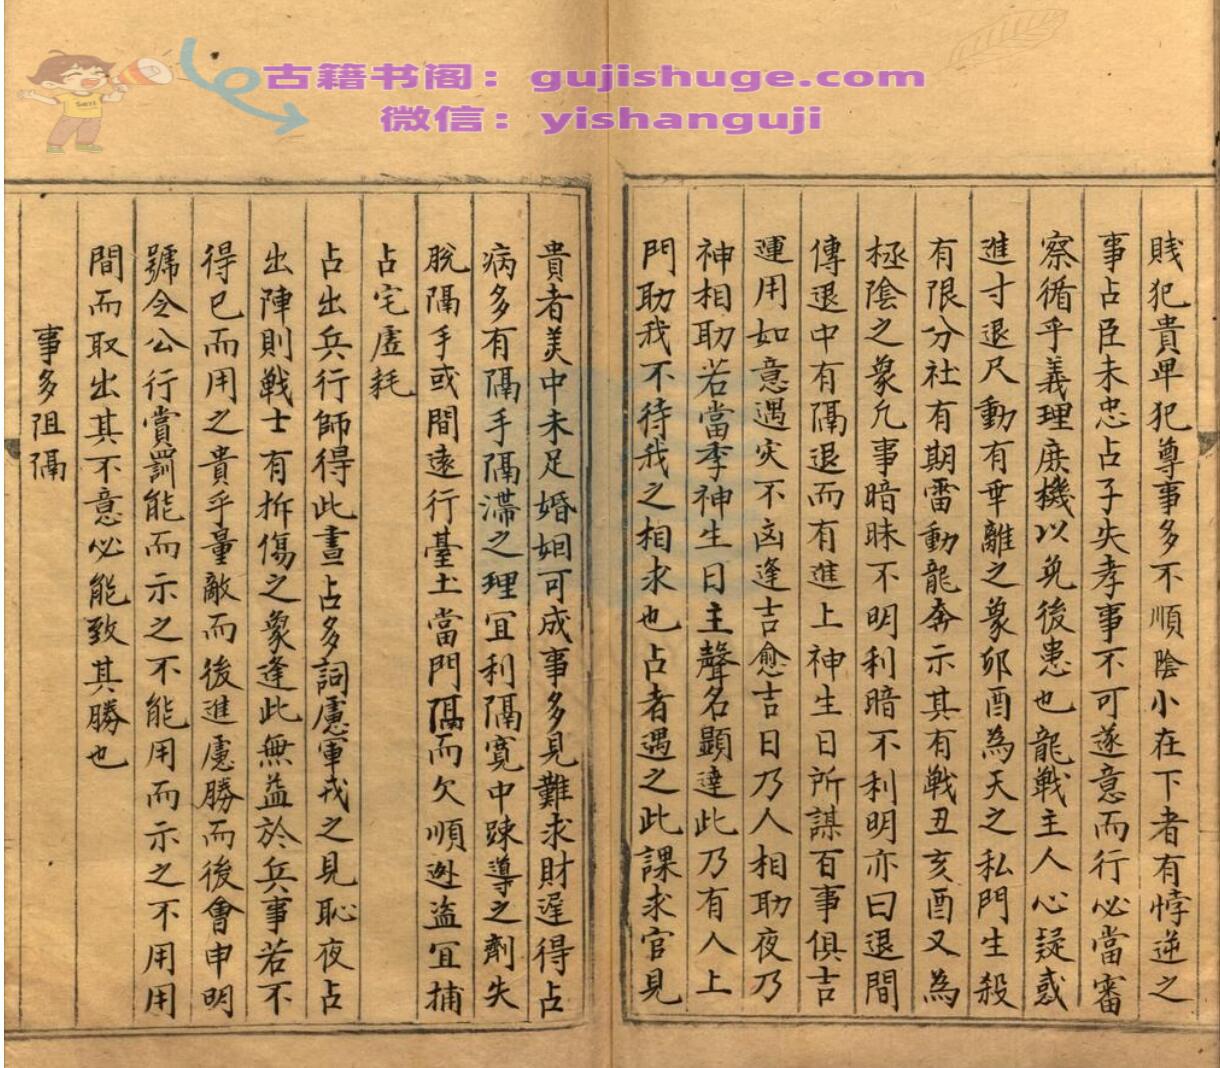 古籍书阁：gujishuge.com
微信：yishanguji
Sweet
賎犯貴卑犯尊事多不順陰小在下者有悖逆之
事占臣未忠占子失孝事不可遂意而行必當審
察循乎義理庶機以免後患也龍戰主人心疑惑
進寸退尺動有乖離之象卯酉為天之私門生殺
有限分社有期雷動龍奔示其有戰丑亥酉又為
極陰之象凡事暗昧不明利暗不利明亦曰退間
傳退中有隔退而有進上神生日所謀百事俱吉
運用如意遇灾不凶逢吉愈吉日乃人相助夜乃
神相助若當季神生日主聲名顯達此乃有人上
門助我不待我之相求也占者遇之此課求官見
貴者美中未足婚姻可成事多見難求財遲得占
病多有隔手隔滯之理宜利隔寛中踈導之劑失
脫隔手或間遠行臺土當門隔而欠順逃盜宜捕
占宅虛耗
占出兵行師得此晝占多詞慮軍戎之見恥夜占
出陣則戰士有拆傷之象逢此無益於兵事若不
得已而用之貴乎量敵而後進慮勝而後會申明
號令公行賞罰能而示之不能用而示之不用用
間而取出其不意必能致其勝也
事多阻隔